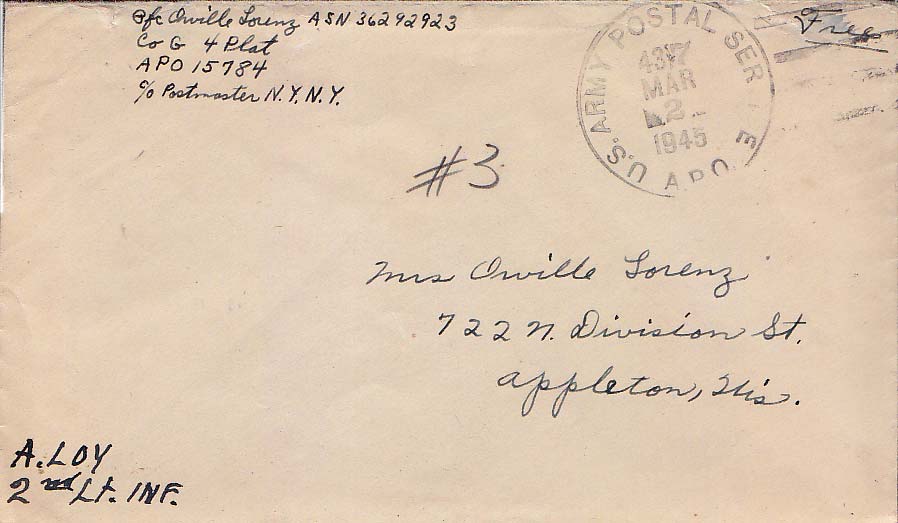 Pfc Orville Lorenz ASN 36292923
Co G 4 Plat
APO 15784
c/o Postmaster N.Y. N.Y.
Free
U.S. ARMY POSTAL SER E
A.P.O.
MAR
2
1945
#3
Mrs Orville Lorenz
722 N. Division St.
Appleton, Wis.
A. LOY
2nd Lt. INF.